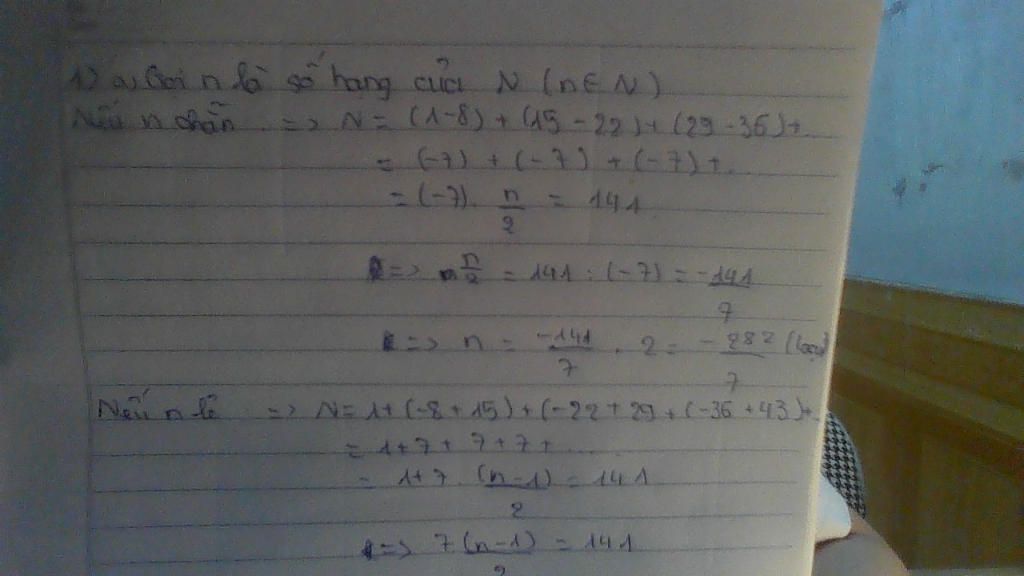 1) a, Gọi n là số hạng của N (n ∈ N)
Nếu n chẵn => N = (1-8) + (15-22) + (29-36)+...
= (-7) + (-7) + (-7)+...
= (-7). n/2 = 141
=> n/2 = 141 : (-7) = -141/7
=> n = -141/7 . 2 = -282/7 (loại)
Nếu n lẻ => N = 1+(-8+15)+(-22+29+(-36+43)+..
= 1+7+7+7+.....
= 1+7. (n-1)/2 = 141
=> 7(n-1)/2 = 141